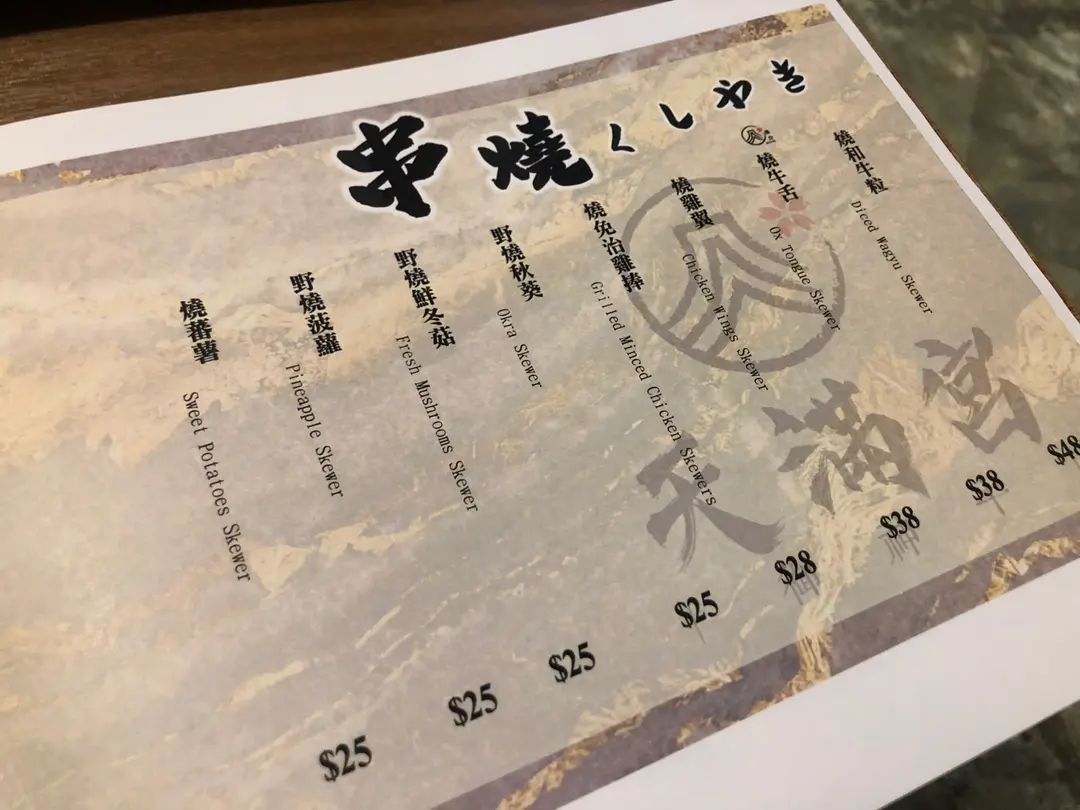 串燒 くしやき
燒和牛粒 Diced Wagyu Skewer $48
燒牛舌 Ox Tongue Skewer $38
燒雞翼 Chicken Wings Skewer $38
燒免治雞棒 Grilled Minced Chicken Skewers $28
野燒秋葵 Okra Skewer $25
野燒鮮冬菇 Fresh Mushrooms Skewer $25
野燒菠蘿 Pineapple Skewer $25
燒蕃薯 Sweet Potatoes Skewer $25
天滿宮